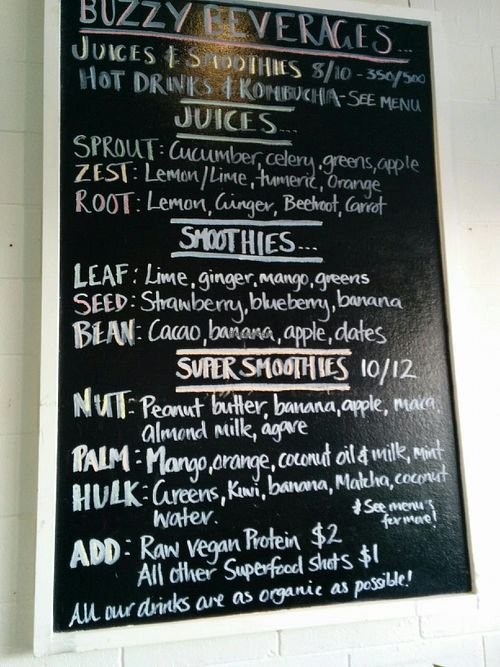 BUZZY BEVERAGES...
JUICES & SMOOTHIES 8/10 - 350/500
HOT DRINKS & KOMBUCHA - SEE MENU
JUICES...
SPROUT: Cucumber, celery, greens, apple
ZEST: Lemon/Lime, tumeric, Orange
ROOT: Lemon, Ginger, Beetroot, Carrot
SMOOTHIES...
LEAF: Lime, ginger, mango, greens
SEED: Strawberry, blueberry, banana
BEAN: Cacao, banana, apple, dates
SUPER SMOOTHIES 10/12
NUT: Peanut butter, banana, apple, maca,
almond milk, agave
PALM: Mango, orange, coconut oil & milk, mint
HULK: Greens, Kiwi, banana, Matcha, coconut
water.
* See menu's
for more!
ADD: Raw Vegan Protein $2
All other Superfood Shots $1
All our drinks are as organic as possible!